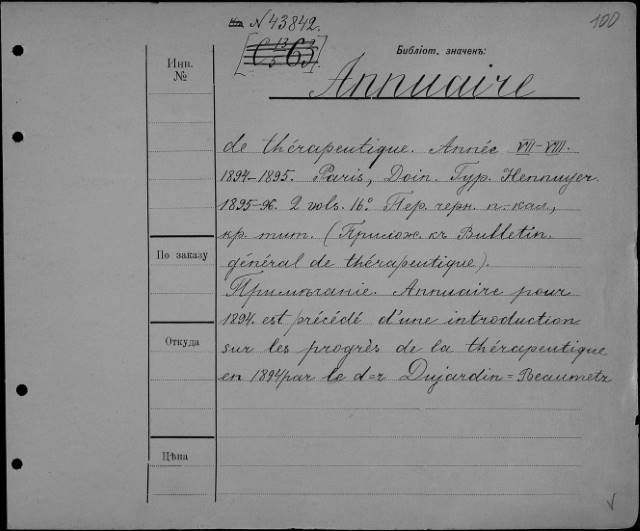 N 43842.
100
Библіот. значекъ:
Инв.
№
Annuaire
de thérapeutique. Année VII-VIII.
1894-1895. Paris, Doin. Тур. Hennuyer.
1895-96. 2 vols. 16°. Пер. черн. п.-кал.,
кр. тит. (Прилож. къ Bulletin
général de thérapeutique).
По заказу
Примѣчаніе. Annuaire pour
1894. est précédé d'une introduction
Откуда
sur les progrès de la thérapeutique
en 1894 par le d=r Dujardin=Beaumetz
Цѣна